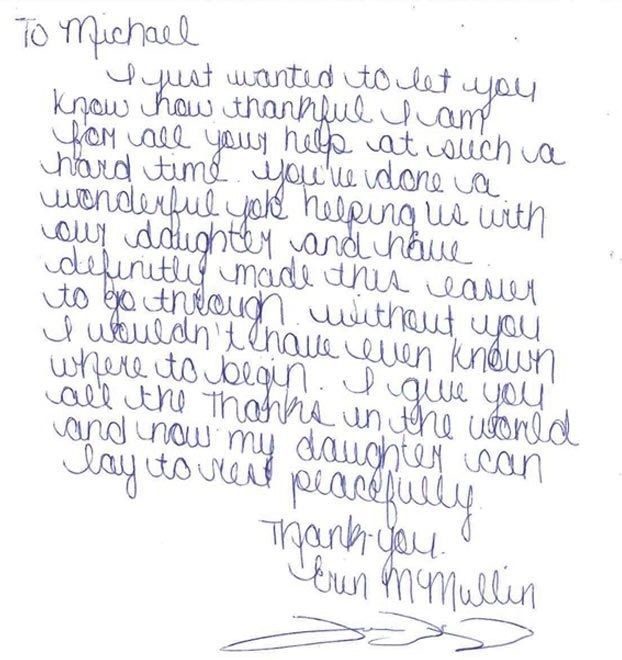 To Michael
I just wanted to let you
know how thankful I am
for all your help at such a
hard time. you've done a
wonderful job helping us with
our daughter and have
definitly made this easier
to go through. without you
I wouldn't have even known
where to begin. I give you
all the thanks in the world
and now my daughter can
lay to rest peacefully.
Thank-you.
Erin McMullin